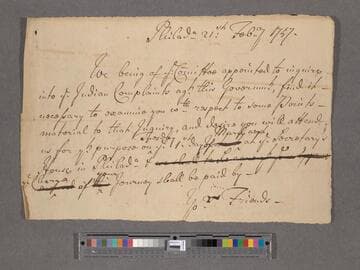 Philada. 21st. Feb:ry 1757.
We being of ye. Comittee appointed to inquire
into ye. Indian Complaints agt. this Governmt., find it
necessary to examine you wth. respect to some Points
material to that Enquiry, and desire you will attend
us for ye. purpose on ye. 1st. day at ye. Secretary's
House in Philada.
of Journey shall be paid by
Yor. Friends